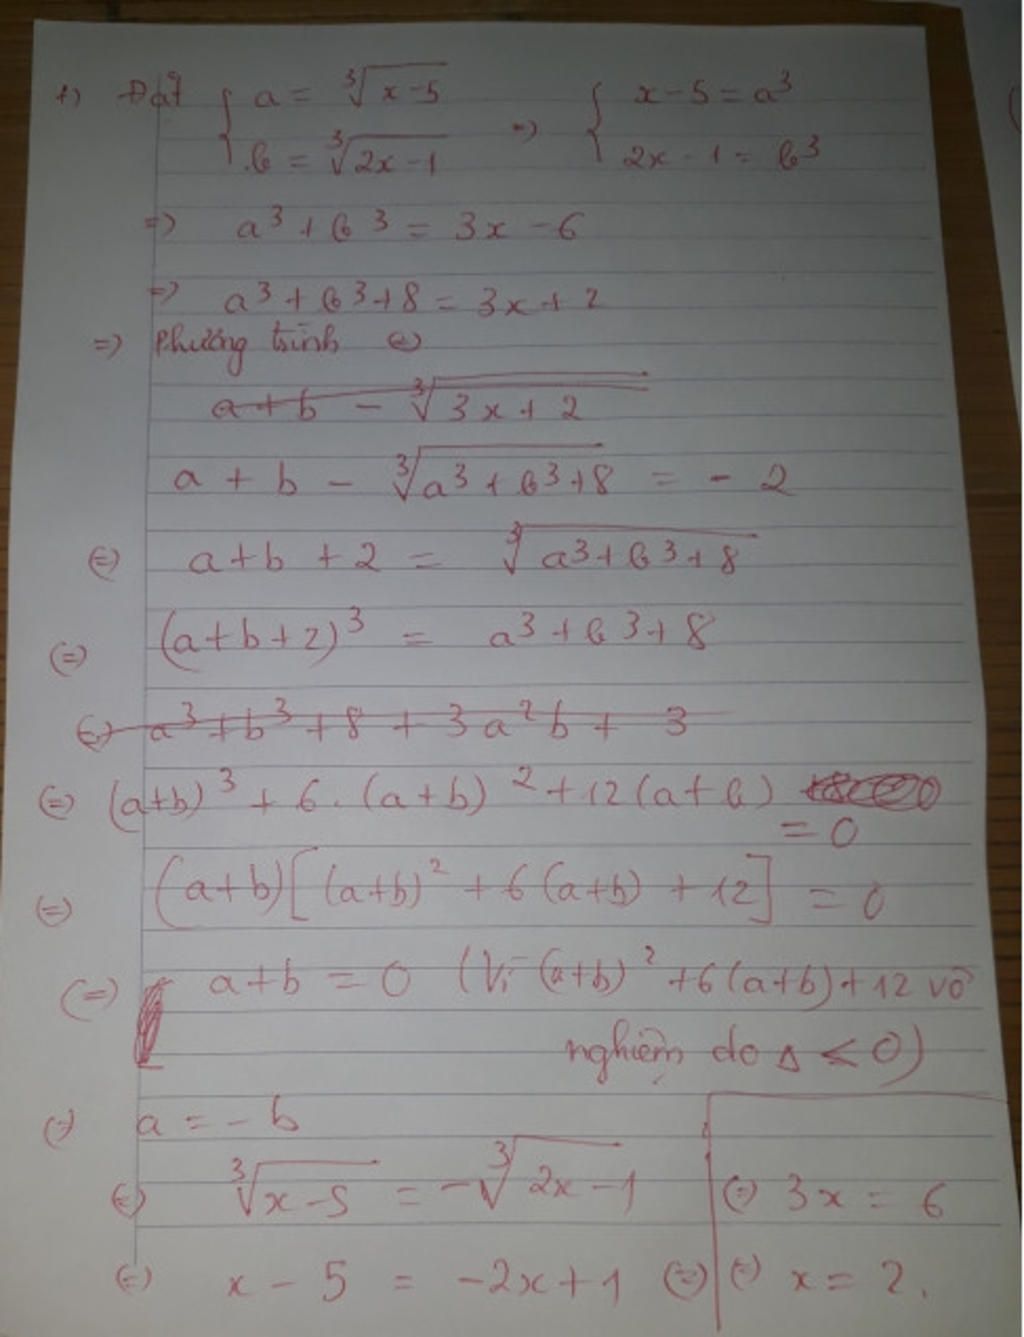 f) Đặt { a = ∛(x-5) => { x-5 = a³
b = ∛(2x-1) 2x-1 = b³
=> a³ + b³ = 3x - 6
=> a³ + b³ + 8 = 3x + 2
=> Phương trình (=)
a + b - ∛(3x+2)
a + b - ∛(a³ + b³ + 8) = - 2
(=) a + b + 2 = ∛(a³ + b³ + 8)
(=) (a+b+2)³ = a³ + b³ + 8
(=) a³ + b³ + 8 + 3a²b + 3
(=) (a+b)³ + 6.(a+b)² + 12(a+b)
= 0
(=) (a+b)[(a+b)² + 6(a+b) + 12] = 0
(=) [ a + b = 0 (Vì (a+b)² + 6(a+b) + 12 vô
nghiệm do Δ < 0)
(=) a = - b
(=) ∛(x-5) = -∛(2x-1)
(=) x - 5 = -2x + 1 (=)
(=) 3x = 6
(=) x = 2.